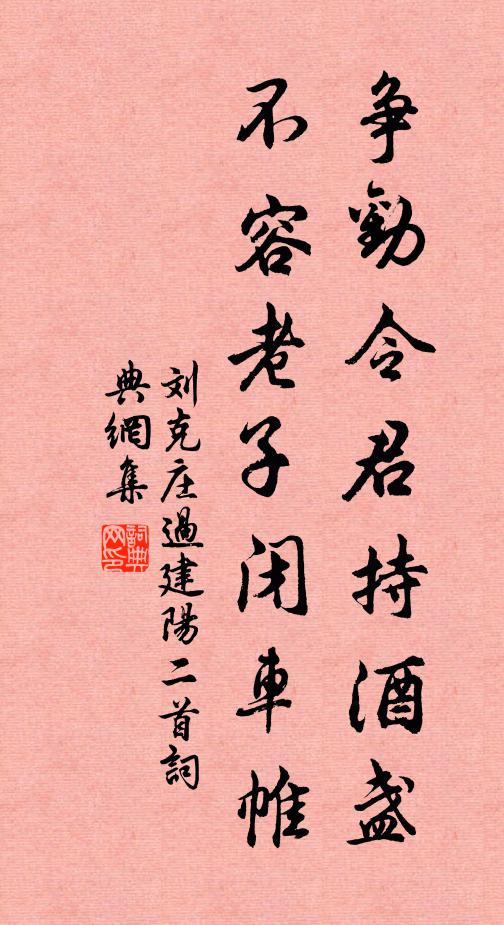 争勸令君持酒盞
不容老子闭車帷
刘克庄過建陽二首詞
典網集
詞典
网印